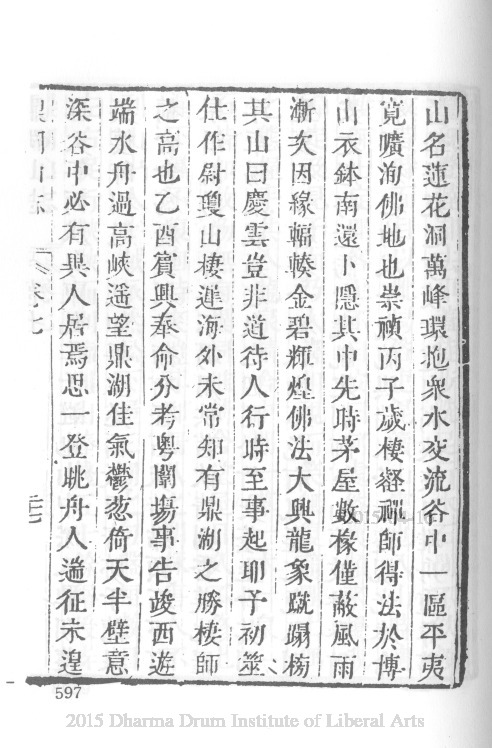 山名蓮花洞萬峰環抱衆水交流谷中一區平夷
寛曠洵佛地也崇禎丙子歲棲壑禪師得法於博
山衣鉢南還卜隱其中先時茅屋數椽僅蔽風雨
漸次因緣輻輳金碧輝煌佛法大興龍象蹴蹋榜
其山曰慶雲豈非道待人行時至事起耶予初筮
仕作尉瓊山棲遲海外未常知有鼎湖之勝棲師
之高也乙酉賓興奉命分考粵闈塲事告竣西遊
端水舟過高峽遥望鼎湖佳氣鬱葱倚天半壁意
深谷中必有異人居焉思一登眺舟人遄征未遑
卷七
597
2015 Dharma Drum Institute of Liberal Arts